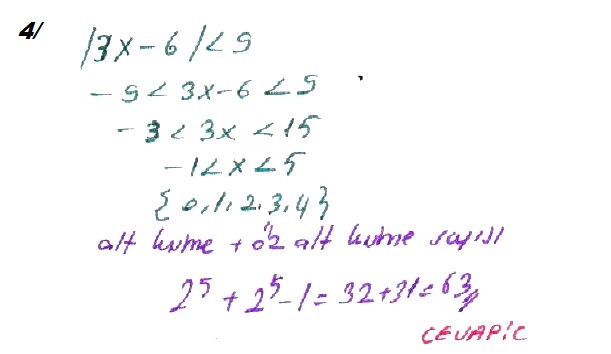 4/
|3x-6|<9
-9<3x-6<9
-3<3x<15
-1<x<5
{0,1,2,3,4}
alt küme + öz alt küme sayısı
2⁵+2⁵-1=32+31=63//
CEVAP:C